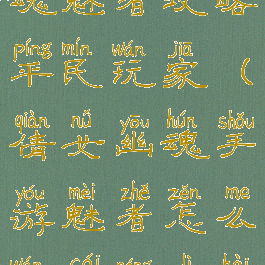 魂 魅 者 攻 略
píng mín wán jiā
平 民 玩 家 （
qiàn nǚ yōu hún shǒu
倩 女 幽 魂 手
yóu mèi zhě zěn me
游 魅 者 怎 么